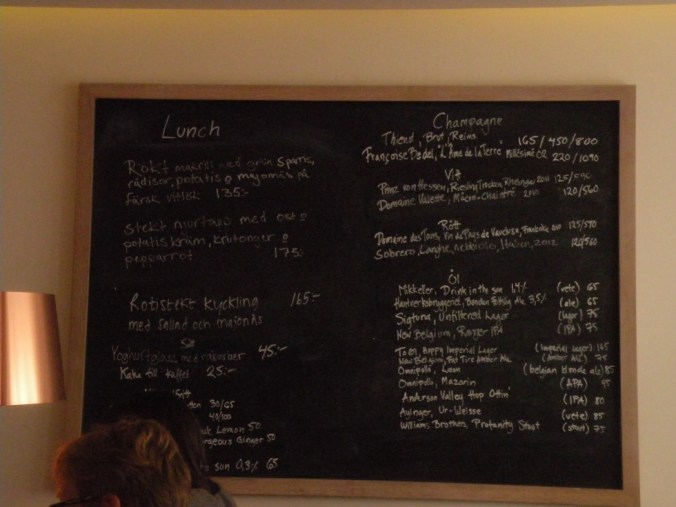 Lunch
Rökt makrill med grön sparris,
rädisor, potatis o majonnäs på
färsk vitlök 135:-
stekt njurtapp med ost o
potatiskräm, krutonger o
pepparrot 175:-
Rotisstekt kyckling 165:-
med sallad och majonäs
Sött
Yoghurtglass med rabarber 45:-
Kaka till kaffet 25:-
30/65
40/100
Lemon 50
Ginger 50
son 0,3% 65
Champagne
Thienot, Brut, Reims 165/450/800
Françoise Bedel, "L'Âme de la Terre" Millésimé 02 220/1090
Vitt
Prinz von Hessen, Riesling Trocken, Rheingau 2011 125/590
Domaine Mâcon-Chaintré 2010 120/560
Rött
Domaine des Tours, Vin de Pays de Vaucluse, Frankrike 125/590
Sobrero, Langhe, nebbiolo, Italien, 2012 120/560
Öl
Mikkeller, Drink in the sun (vete) 65
Hantverksbryggeriet, Bondens 3,5% (ale) 65
Sigtuna, Unfiltered Lager (lager) 75
New Belgium, Ranger IPA (IPA) 75
To Øl, Hoppy Imperial Lager (Imperial lager) 165
New Belgium, Fat Tire Amber Ale (Amber Ale) 75
Omnipollo, Leon (belgian blonde ale) 85
Omnipollo, Mazarin (APA) 95
Anderson Valley Hop Ottin' (IPA) 80
Ayinger, Ur-Weisse (vete) 85
Williams Brothers, Profanity Stout (stout) 75